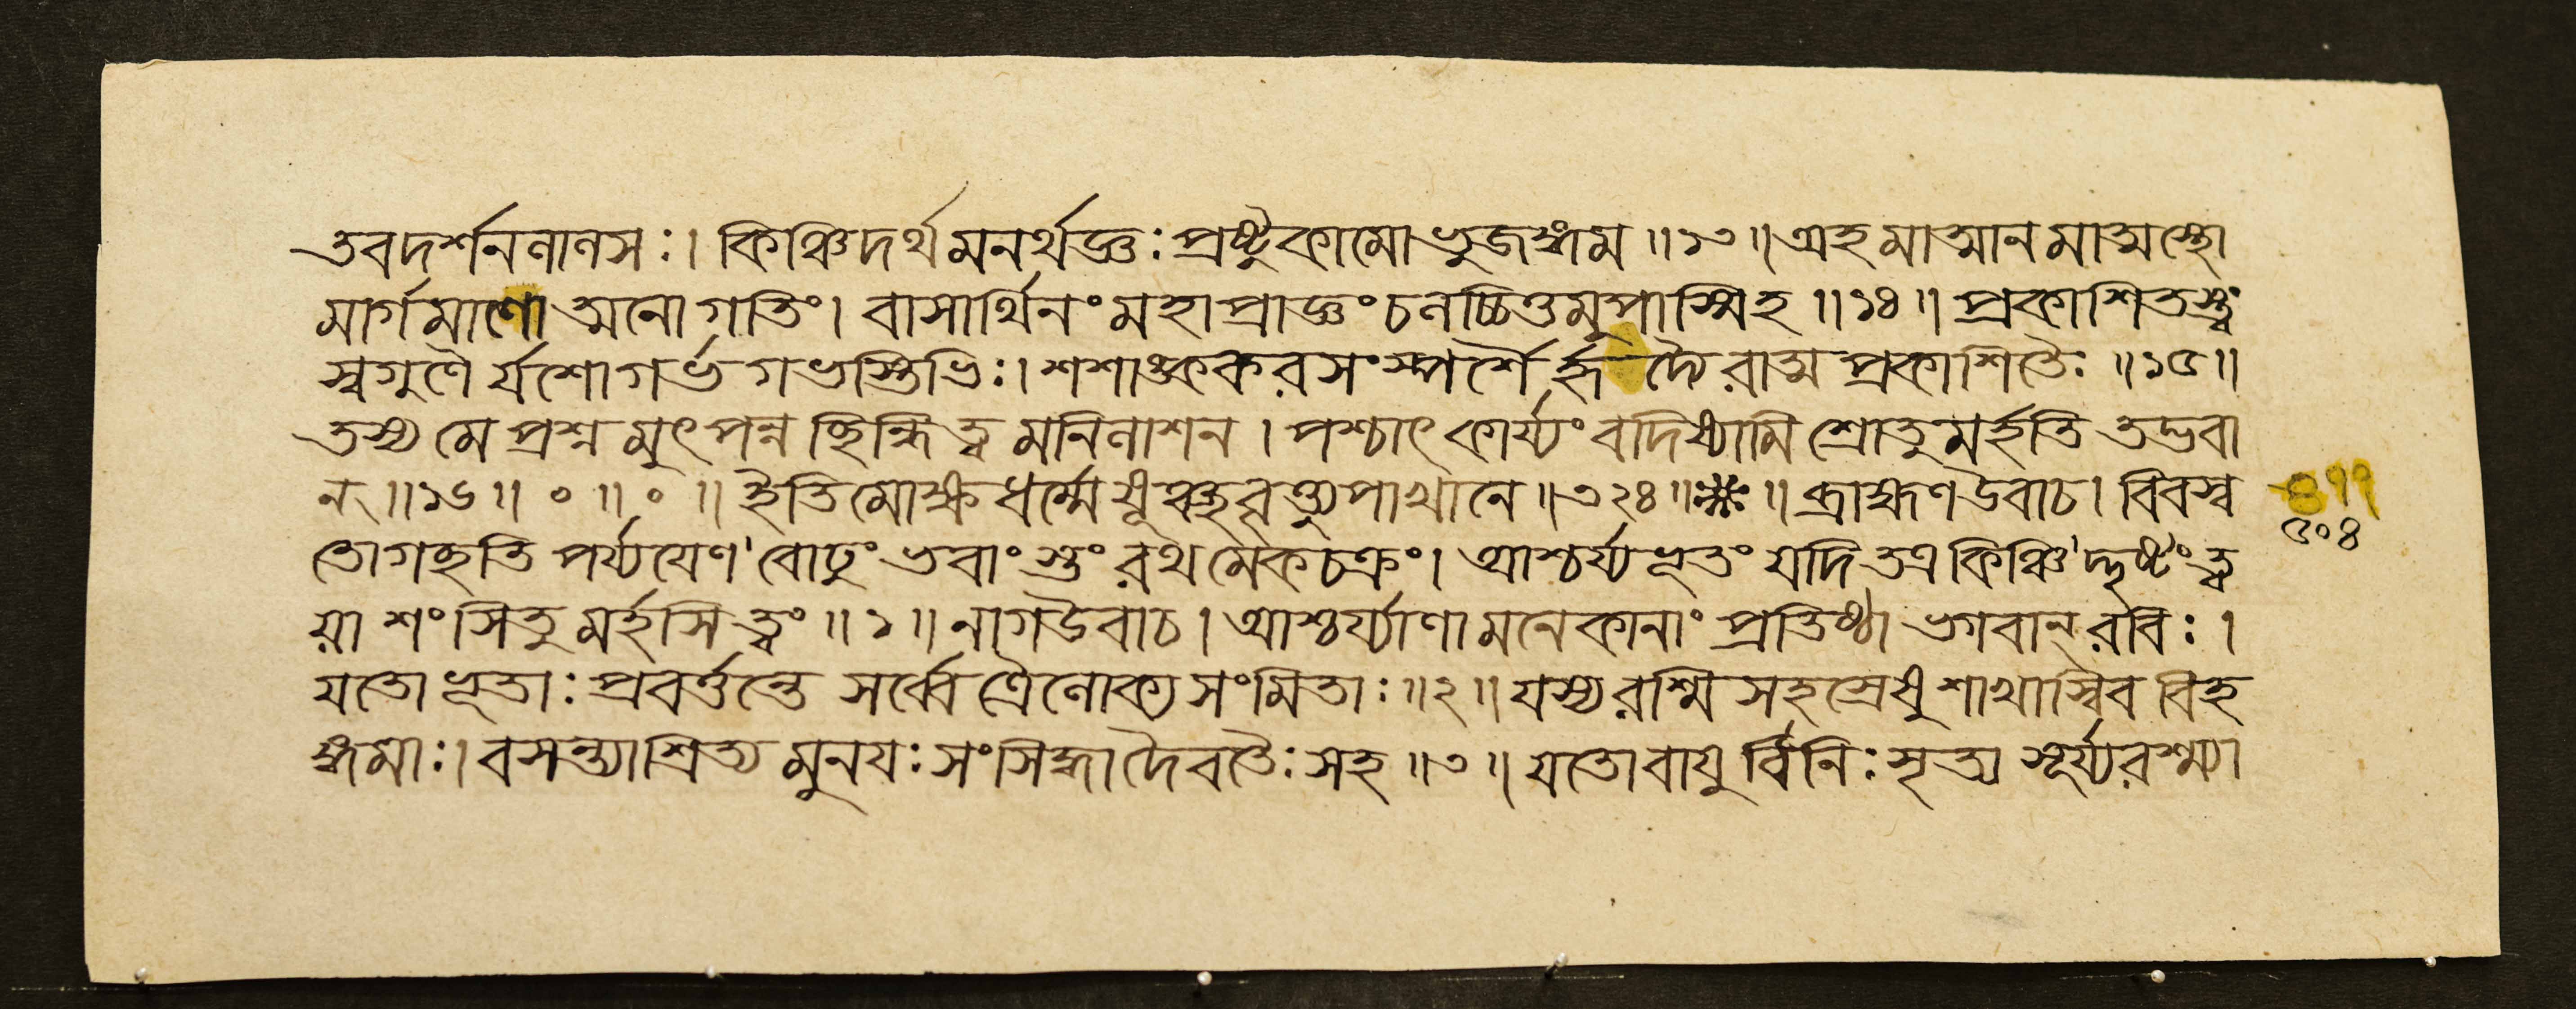 তবদর্শনলালসঃ। কিঞ্চিদর্থমনর্থজ্ঞঃ প্রষ্টুকামো ভুজঙ্গম ॥১৩॥ অহমাত্মানমাত্মস্থো
মার্গমাণো ত্মনো গতিং। বাসার্থিনং মহাপ্রাজ্ঞং চলচ্চিত্তমুপাস্মিহ ॥১৪॥ প্রকাশিতস্ত্বং
স্বগুণৈর্যশোগর্ভগভস্তিভিঃ। শশাঙ্ককরসংস্পর্শৈর্হৃদ্যৈরাত্মপ্রকাশিতৈঃ ॥১৫॥
তস্য মে প্রশ্নমুৎপন্নং ছিন্ধি ত্বমনিলাশন। পশ্চাৎ কার্য্যং বদিষ্যামি শ্রোতুমর্হতি তদ্ভবা
ন্ ॥১৬॥ ० ॥ ० ॥ ইতি মোক্ষধর্ম্মেষূঞ্ছবৃত্ত্যুপাখ্যানে ॥৩২৪॥ ॥ ব্রাহ্মণ উবাচ। বিবস্ব
তো গচ্ছতি পর্য্যয়েণ বোঢুং ভবাংস্তং রথমেকচক্রং। আশ্চর্য্যভূতং যদি তত্র কিঞ্চিদ্দৃষ্টং ত্ব
য়া শংসিতুমর্হসি ত্বং ॥১॥ নাগ উবাচ। আশ্চর্য্যাণামনেকানাং প্রতিষ্ঠা ভগবান্ রবিঃ।
যতো ভূতাঃ প্রবর্ত্তন্তে সর্ব্বে ত্রৈলোক্যসংমিতাঃ ॥২॥ যস্য রশ্মিসহস্রেষু শাখাস্বিব বিহ
ঙ্গমাঃ। বসন্ত্যাশ্রিত্য মুনয়ঃ সংসিদ্ধা দৈবতৈঃ সহ ॥৩॥ যতো বায়ুর্বিনিঃসৃত্য সূর্য্যরশ্ম্যা
৪৭৭
৫০৪